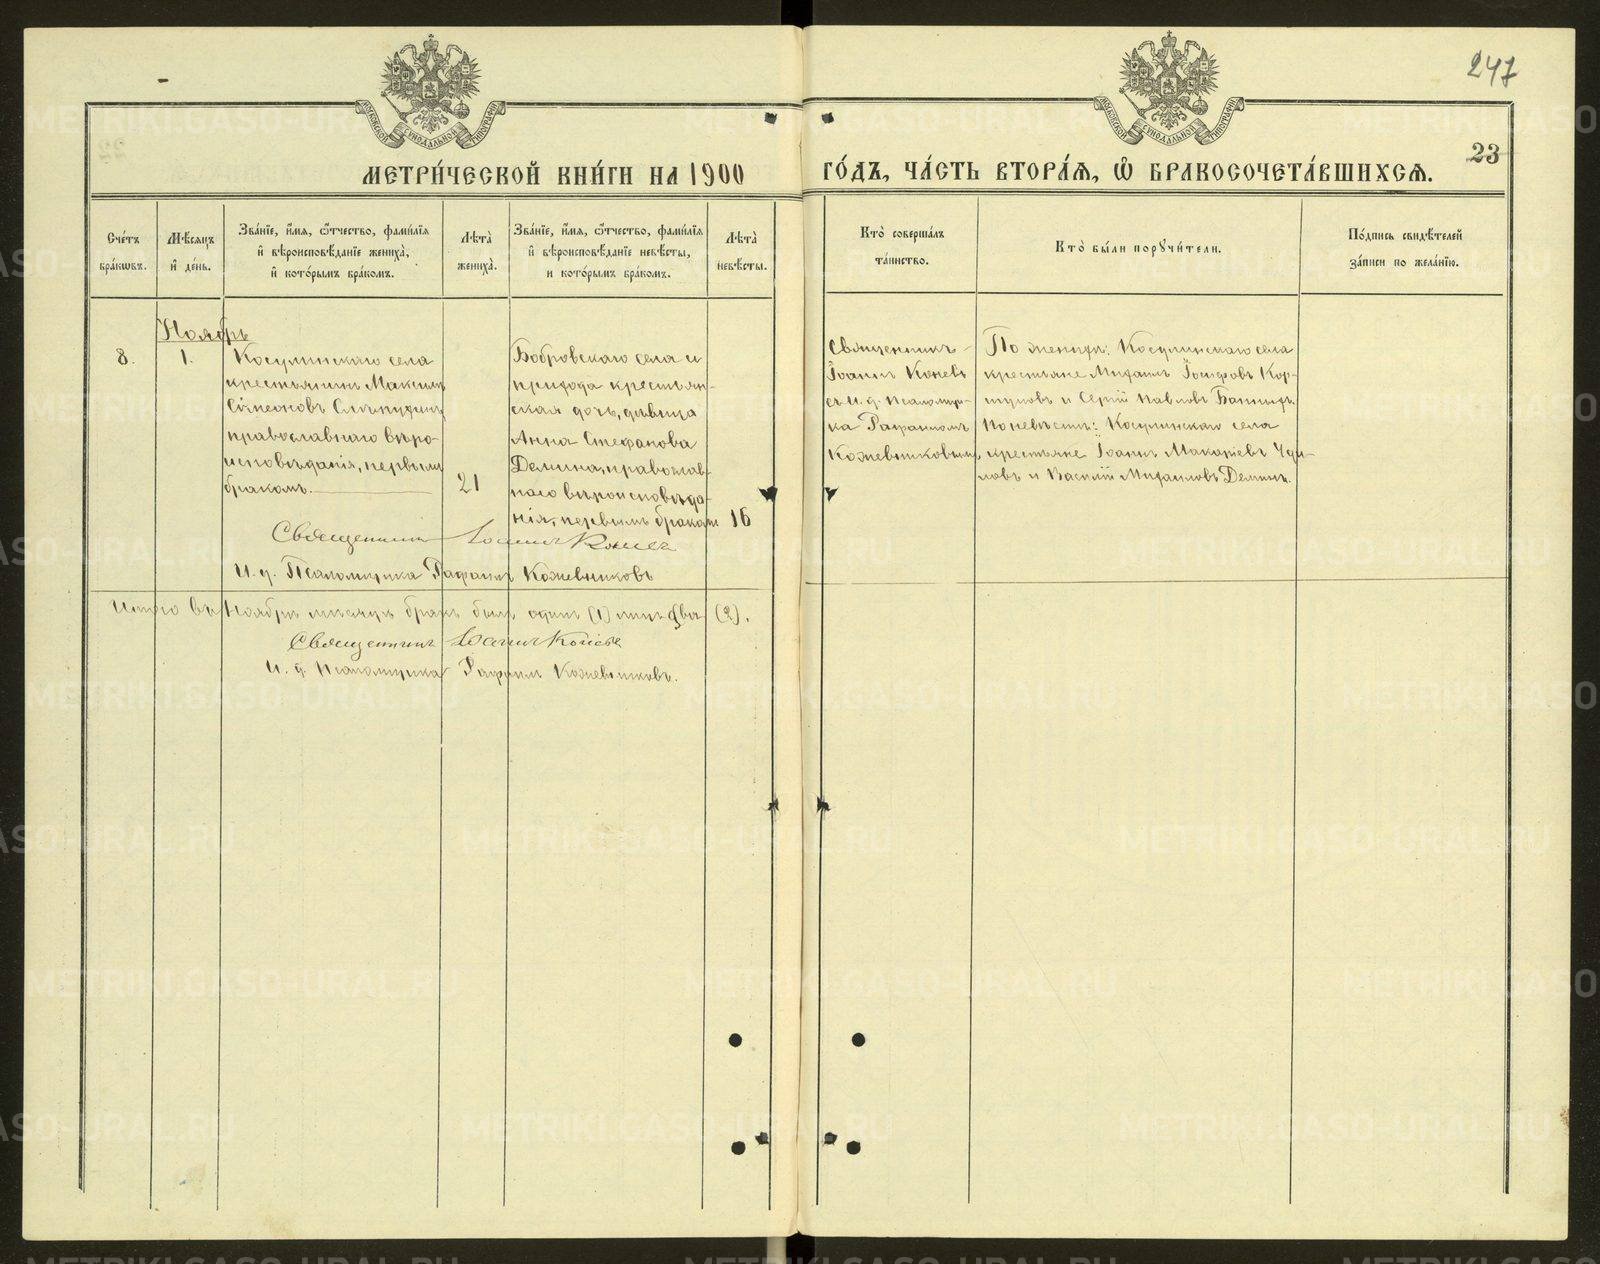 247
23
МЕТРИ́ЧЕСКОЙ КНИ́ГИ НА 1900 ГО́ДЪ, ЧА́СТЬ ВТОРА́Я, Ѡ҆ БРАКОСОЧЕТА́ВШИХСЯ.
Сче́тъ бра́кѡвъ.
Мѣ́сяцъ и҆ де́нь.
Зва́нїе, и҆́мя, ѻ҆́тчество, фами́лїя и҆ вѣроисповѣ́данїе жениха̀, и҆ кото́рымъ бра́комъ.
Лѣ́та̀ жениха̀.
Зва́нїе, и҆́мя, ѻ҆́тчество, фами́лїя и҆ вѣроисповѣ́данїе невѣ́сты, и кото́рымъ бра́комъ.
Лѣ́та̀ невѣ́сты.
Кто̀ соверша́лъ та́инство.
Кто̀ бы́ли порꙋчи́тели.
По́дпись свидѣ́телей за́писи по жела́нїю.
Ноябрь
8.
1.
Косулинскаго села
крестьянинъ Максимъ
Сѷмеоновъ
православнаго вѣро-
исповѣданія, первымъ
бракомъ.
21
Бобровскаго села и
прихода крестьян-
ская дочь, дѣвица
Анна Стефанова
Демина, православ-
наго вѣроисповѣда-
нія, первымъ бракомъ
16
Священникъ
Іоаннъ Коневъ
съ и. д. псаломщи-
ка Рафаиломъ
Кожевниковымъ
По женихѣ: Косулинскаго села
крестьяне Михаилъ Іосифовъ Кор-
шуновъ и Сергій Павловъ
По невѣстѣ: Косулинскаго села
крестьяне Іоаннъ Макаріевъ
ловъ и Василій Михаиловъ Деминъ.
Священникъ Іоаннъ Коневъ
И. д. Псаломщика Рафаилъ Кожевниковъ
Итого въ Ноябрѣ мѣсяцѣ бракъ былъ одинъ (1) лицъ два (2).
Священникъ Іоаннъ Коневъ
И. д. Псаломщика Рафаилъ Кожевниковъ.
METRIKI.GASO-URAL.RU